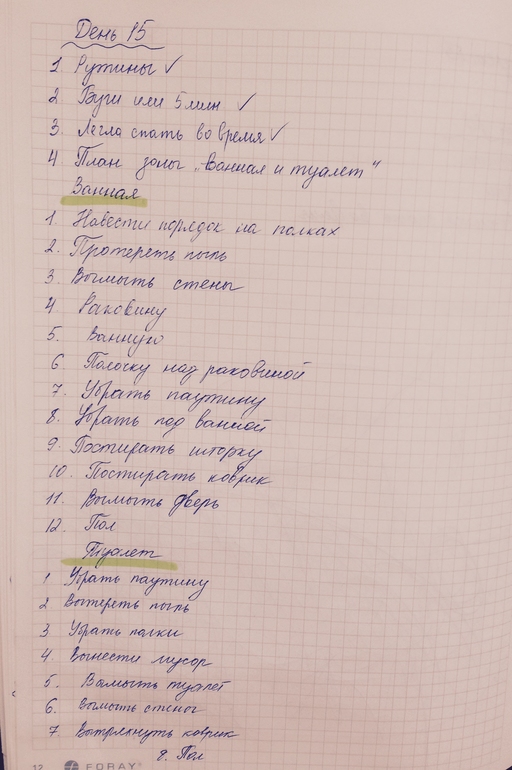 День 15
1. Рутины ✓
2 Буги или 5 мин ✓
3. Легла спать во время ✓
4 План зоны „Ванная и туалет"
Ванная
1. Навести порядок на полках
2. Протереть пыль
3. Вымыть стены
4. Раковину
5. Ванную
6. Полочку над раковиной
7. Убрать паутину
8. Убрать под ванной
9. Постирать шторку
10. Постирать коврик
11. Вымыть дверь
12. Пол
Туалет
1 Убрать паутину
2 Вытереть пыль
3 Убрать полки
4. Вынести мусор
5. Вымыть туалет
6. Вымыть стены
7. Вытряхнуть коврик
8. Пол
12 FORAY